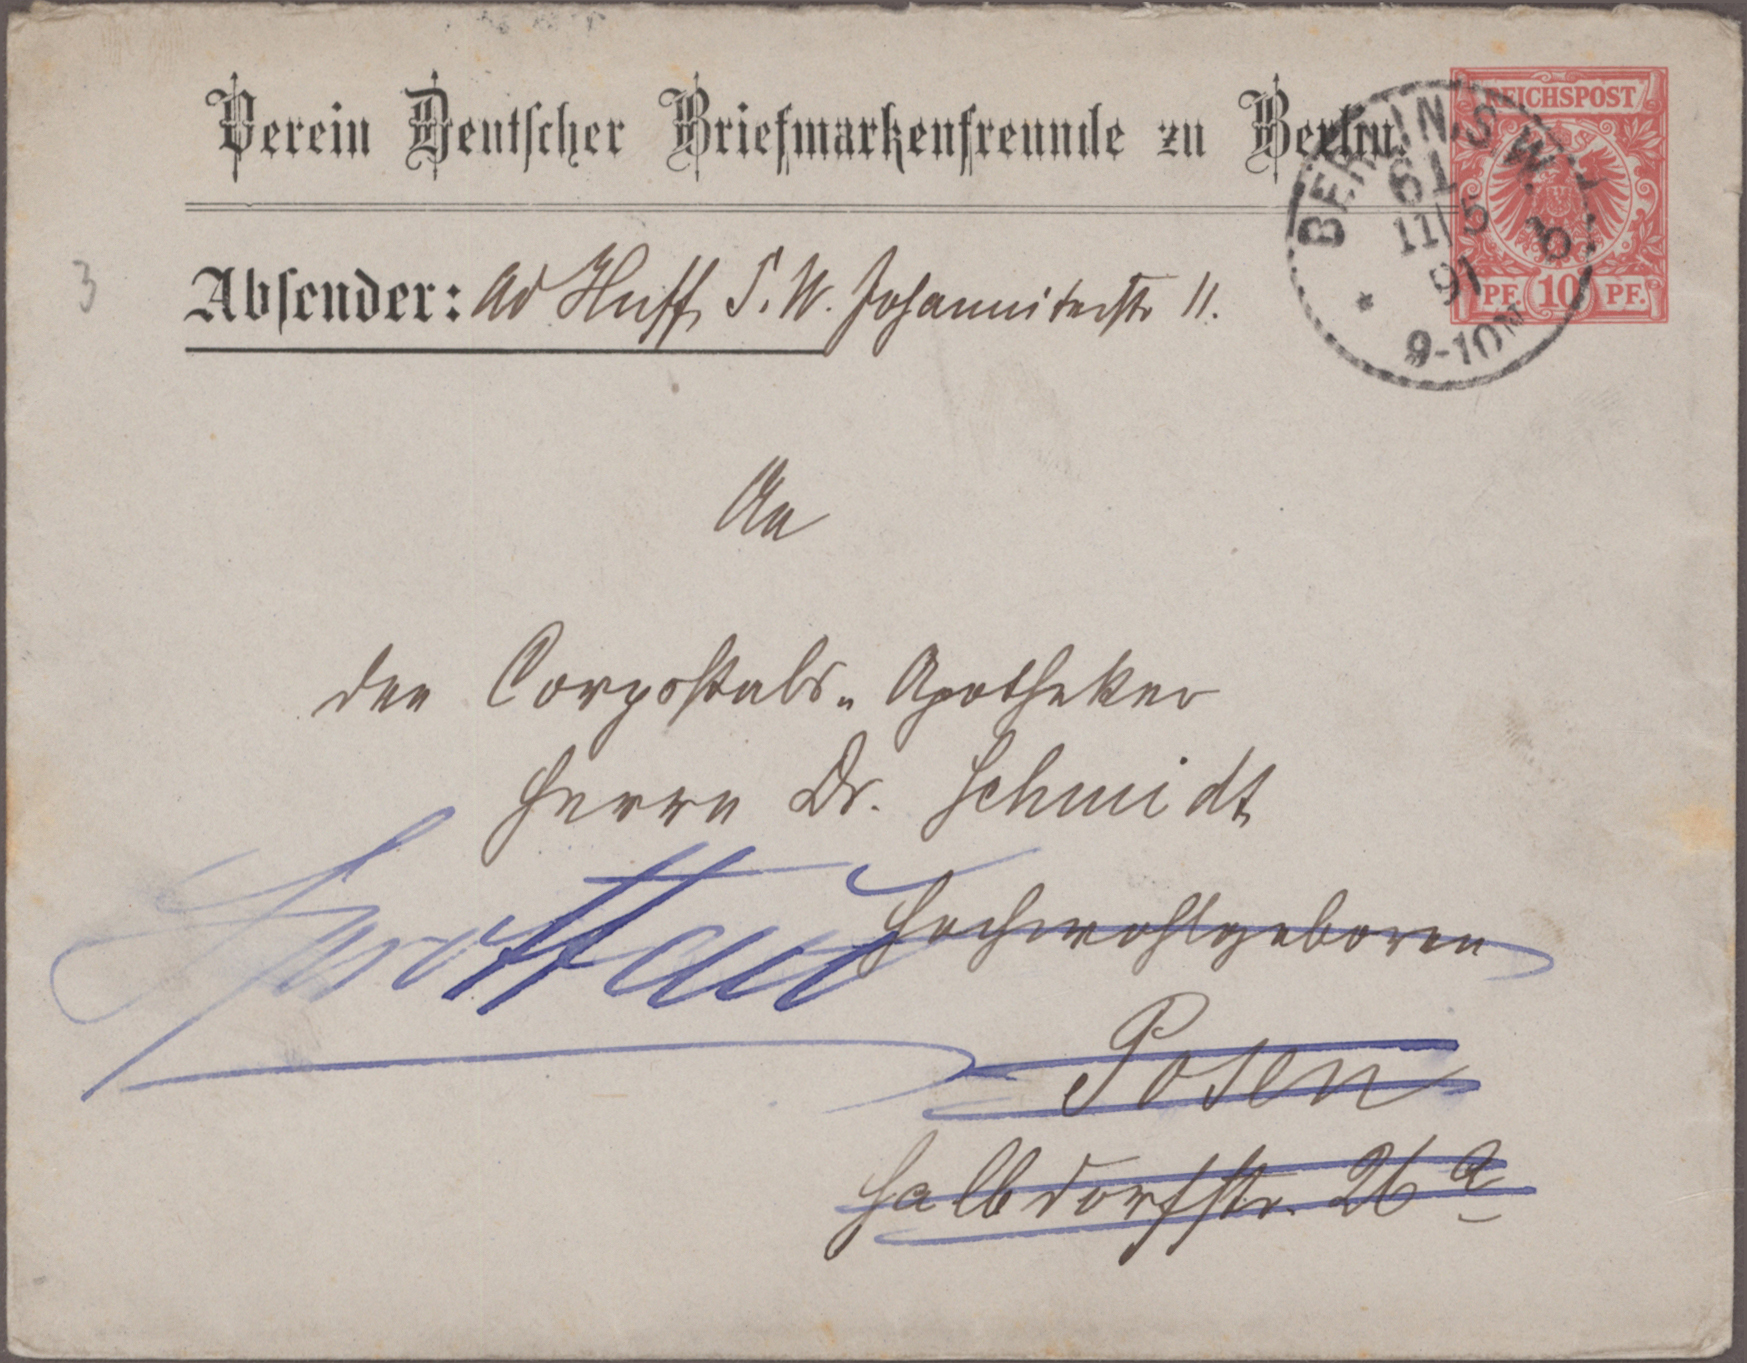 Verein Deutscher Briefmarkenfreunde zu Berlin.
REICHSPOST
PF. 10 PF.
BERLIN, S.W.
61
11/5
91
9-10N
3
Absender: Ad Huff, S. W. Johanniterstr 11.
An
den Corpsstabs-Apotheker
Herrn Dr. Schmidt
Hochwohlgeboren
Sprottau
Posen
Halbdorfstr. 26 a